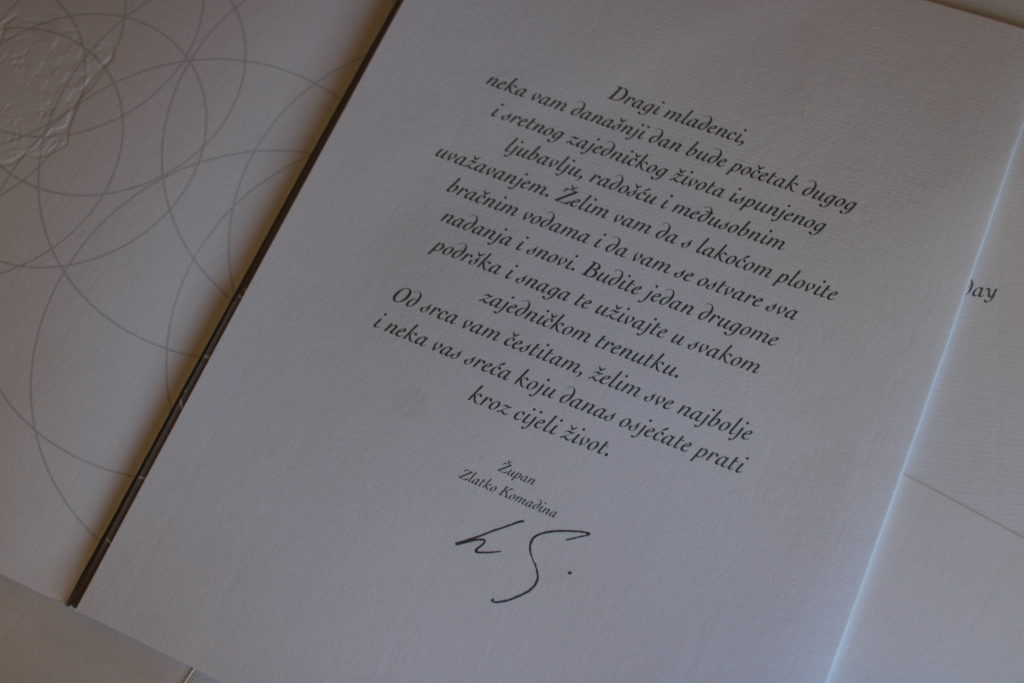 Dragi mladenci,
neka vam današnji dan bude početak dugog
i sretnog zajedničkog života ispunjenog
ljubavlju, radošću i međusobnim
uvažavanjem. Želim vam da s lakoćom plovite
bračnim vodama i da vam se ostvare sva
nadanja i snovi. Budite jedan drugome
podrška i snaga te uživajte u svakom
zajedničkom trenutku.
Od srca vam čestitam, želim sve najbolje
i neka vas sreća koju danas osjećate prati
kroz cijeli život.
Župan
Zlatko Komadina